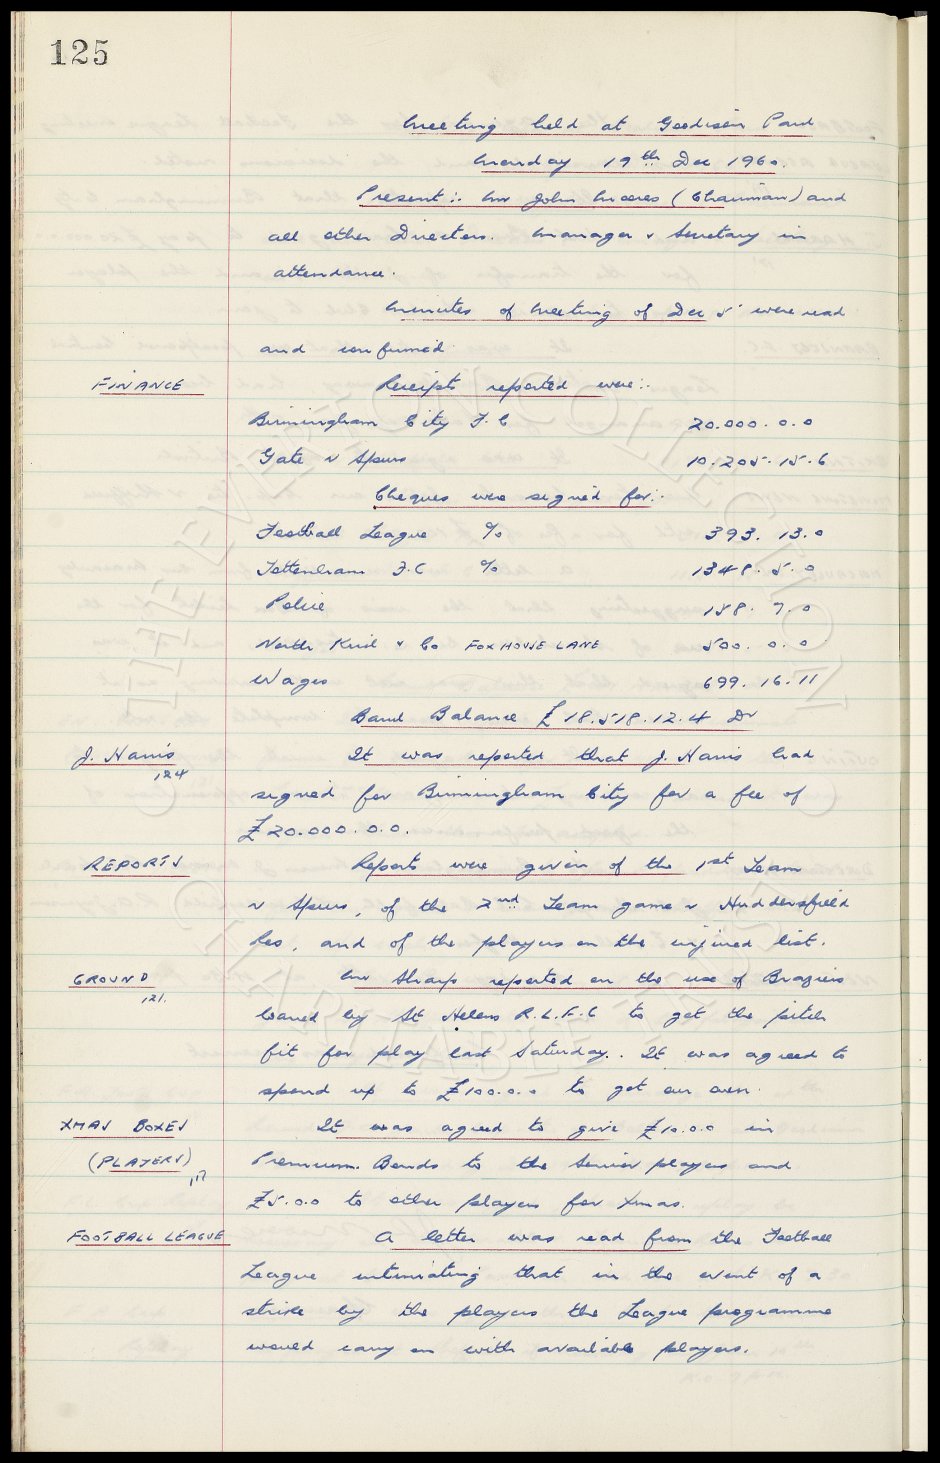 125
Meeting held at Goodison Park
Monday 19th Dec 1960.
Present:. Mr John Moores (Chairman) and
all other Directors. Manager & Secretary in
attendance.
Minutes of Meeting of Dec 5 were read
and confirmed
FINANCE Receipts reported were:.
Birmingham City F.C 20.000.0.0
Gate v Spurs 10.205.15.6
Cheques were signed for:.
Football League % 393.13.0
Tottenham F.C % 1348.5.0
Police 158.7.0
North Kirid & Co FOX HOUSE LANE 500.0.0
Wages 699.16.11
Bank Balance £18.518.12.4 Dr
J. Harris It was reported that J. Harris had
124
signed for Birmingham City for a fee of
£20.000.0.0.
REPORTS Reports were given of the 1st Team
v Spurs, of the 2nd Team game v Huddersfield
Res, and of the players on the injured list.
GROUND Mr Sharp reported on the use of Braziers
121.
loaned by St Helens R.L.F.C to get the pitch
fit for play last Saturday.. It was agreed to
spend up to £100.0.0 to get our own.
XMAS BOXES It was agreed to give £10.0.0 in
(PLAYERS) Premium. Bonds to the Senior players and
117
£5.0.0 to other players for Xmas.
FOOTBALL LEAGUE A letter was read from the Football
League intimating that in the event of a
strike by the players the League programme
would carry on with available players.
THE EVERTON COLLECTION
CHARITABLE TRUST